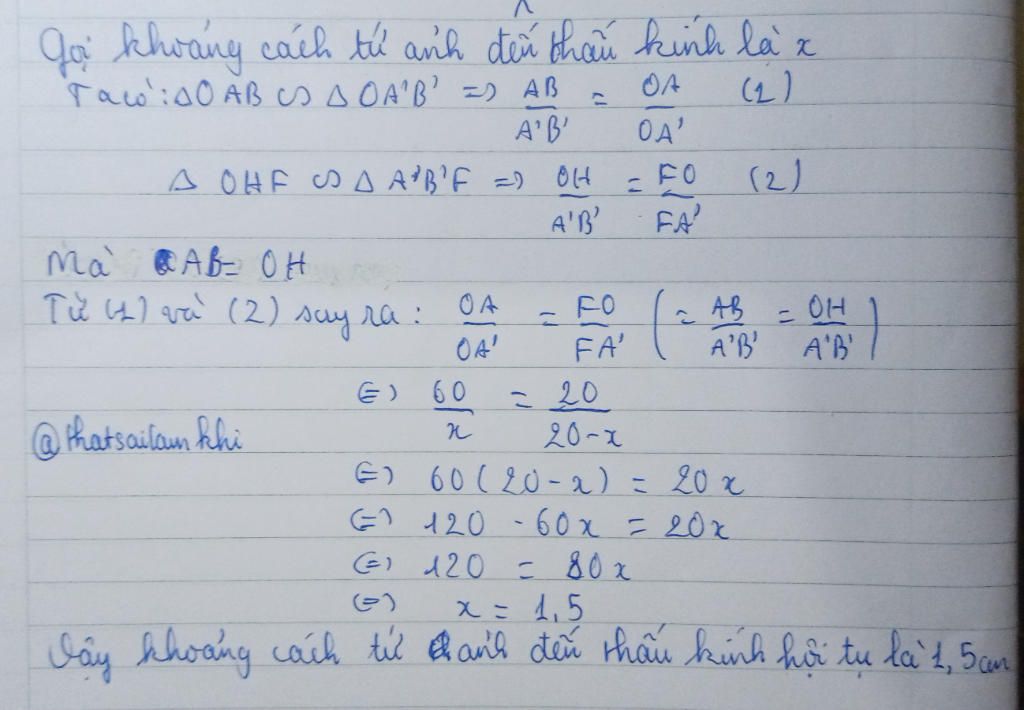 Gọi khoảng cách từ ảnh đến thấu kính là x
Ta có: △OAB ∽ △OA'B' => AB/A'B' = OA/OA' (1)
△OHF ∽ △A'B'F => OH/A'B' = FO/FA' (2)
Mà AB = OH
Từ (1) và (2) suy ra: OA/OA' = FO/FA' (= AB/A'B' = OH/A'B')
<=> 60/x = 20/20-x
@thatsailamkhi
<=> 60(20-x) = 20x
<=> 120 - 60x = 20x
<=> 120 = 80x
<=> x = 1,5
Vậy khoảng cách từ ảnh đến thấu kính hội tụ là 1,5cm